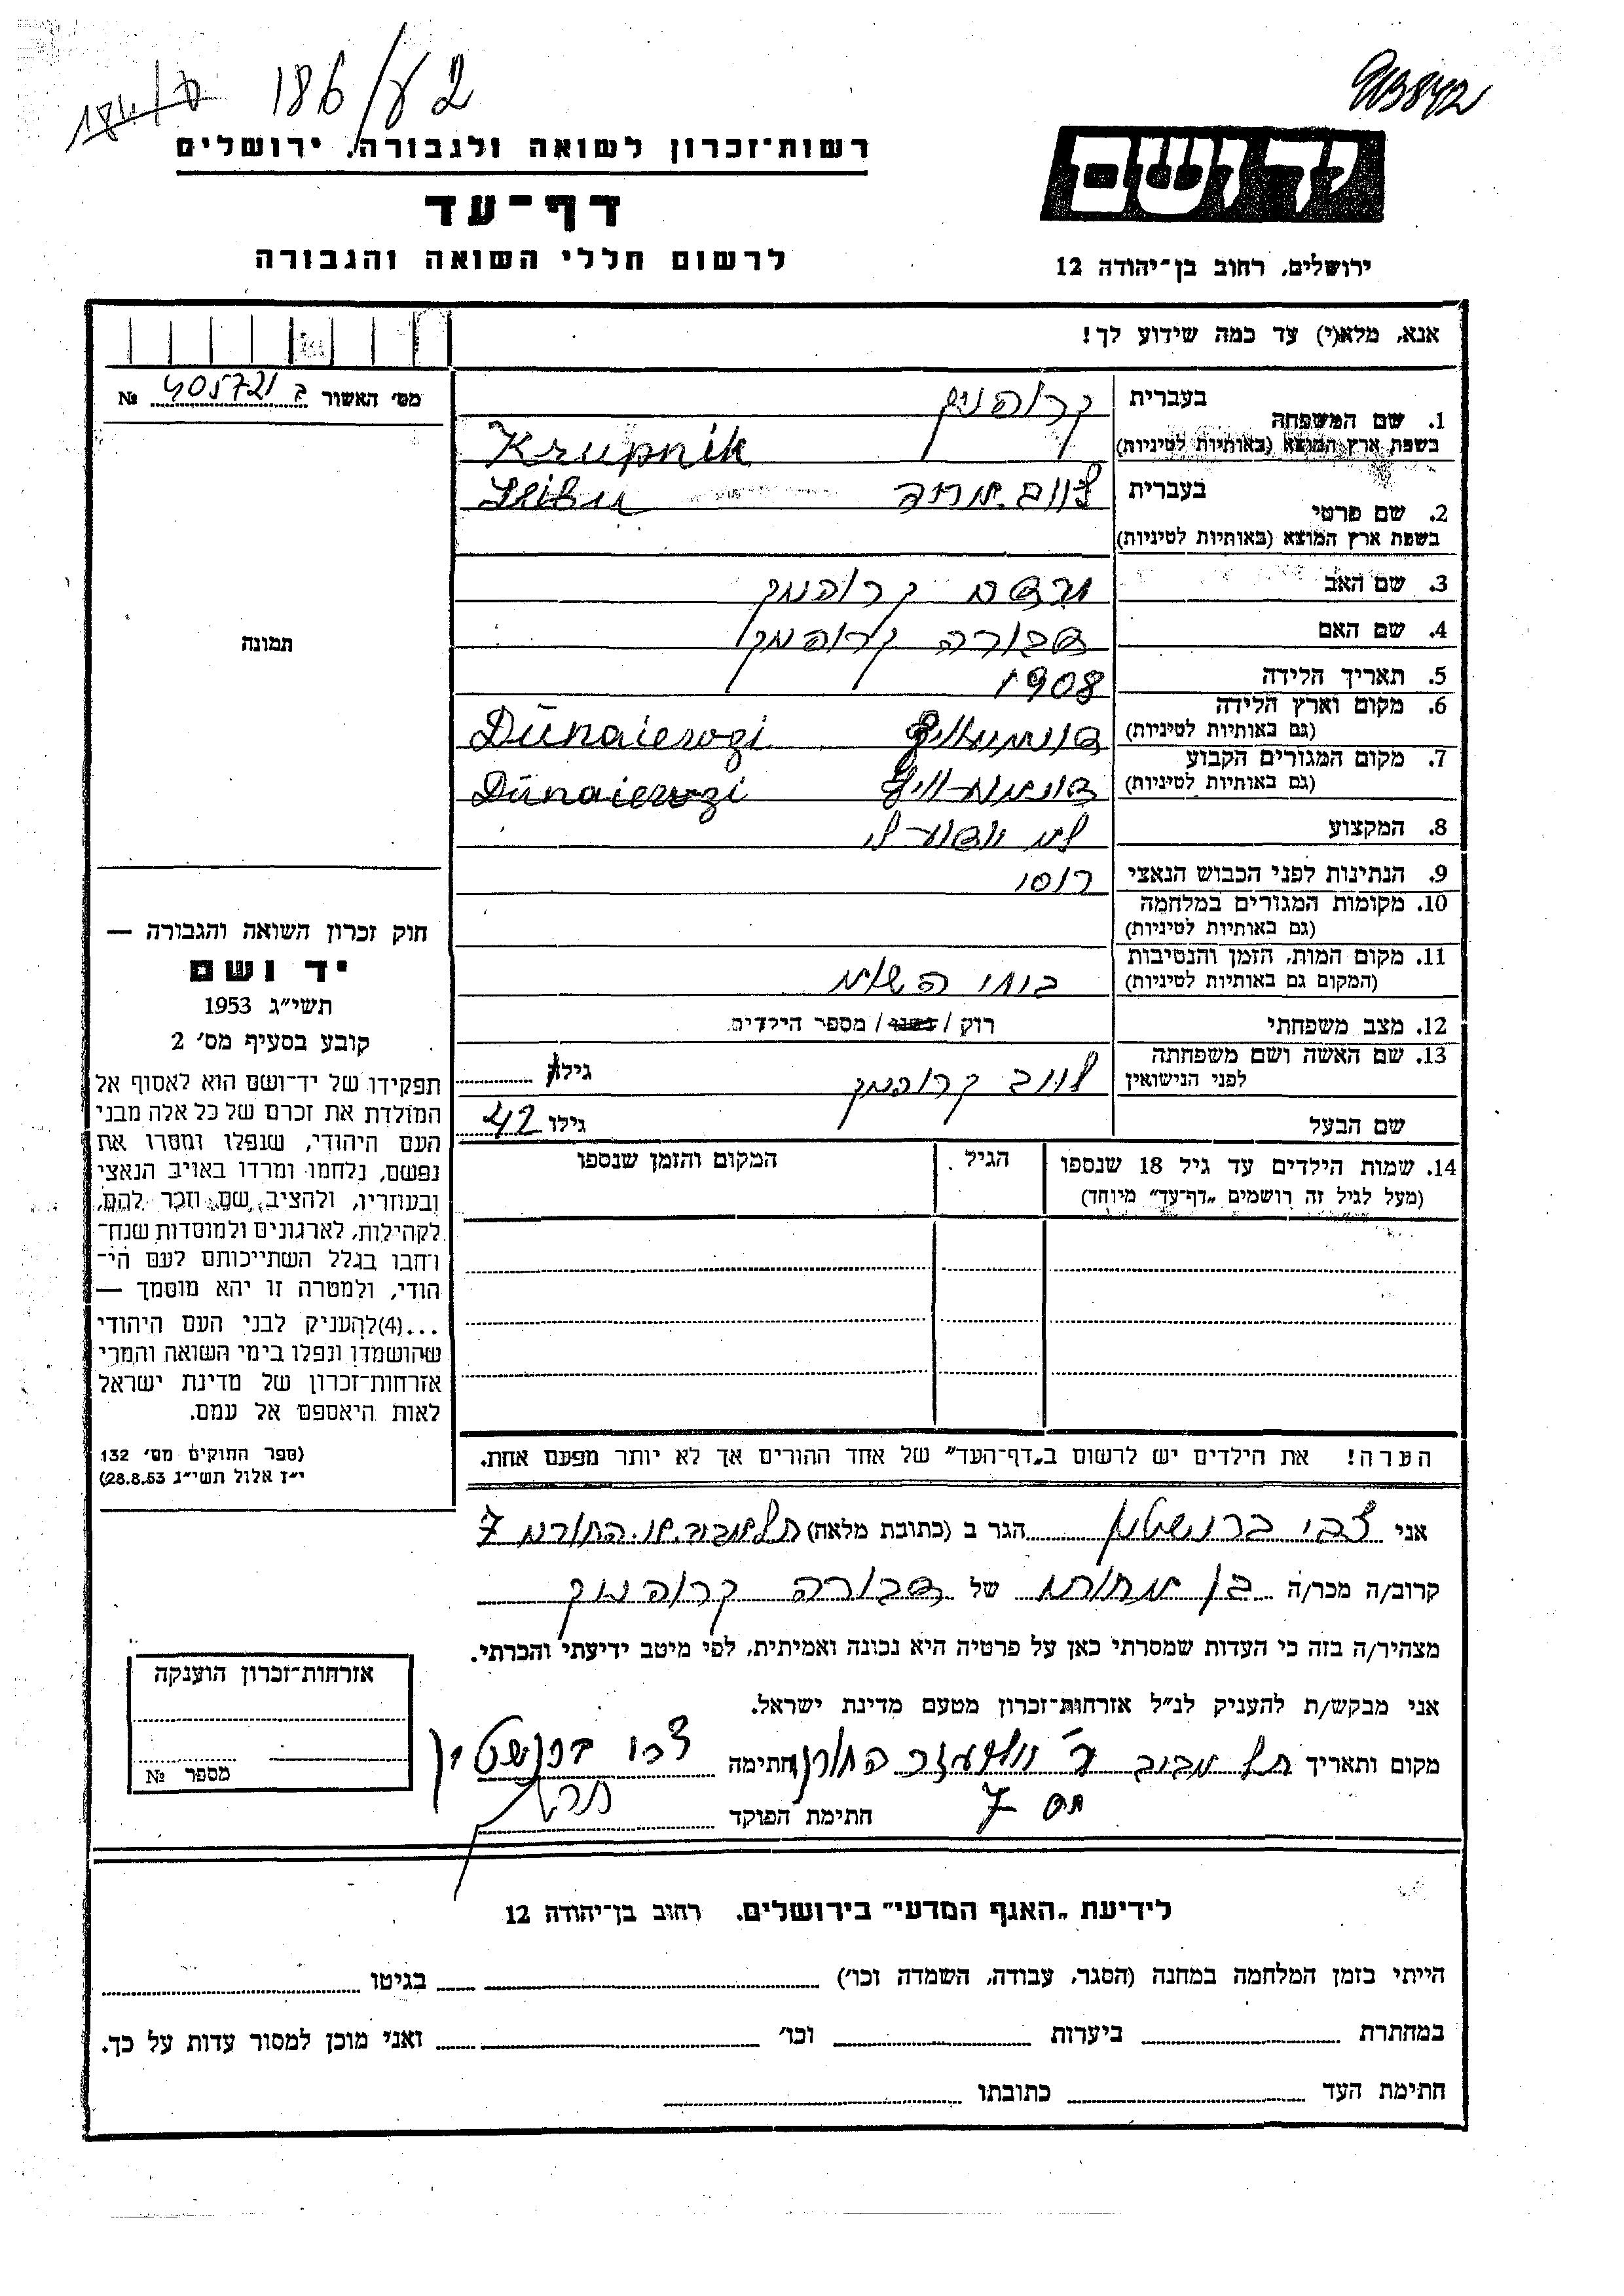 186/ע2
93842
רשות־זכרון לשואה ולגבורה, ירושלים
דף־עד
לרשום חללי השואה והגבורה
יד ושם
ירושלים, רחוב בן־יהודה 12
אנא, מלא(י) עד כמה שידוע לך!
מס' האשור ב 405721 №
1. שם המשפחה
בעברית קרופניק
בשפת ארץ המוצא (באותיות לטיניות) Krupnik
2. שם פרטי
בעברית לייב
בשפת ארץ המוצא (באותיות לטיניות)
3. שם האב קרופניק
4. שם האם דבורה קרופניק
5. תאריך הלידה 1908
6. מקום וארץ הלידה
(גם באותיות לטיניות) Dunaiewgi
7. מקום המגורים הקבוע
(גם באותיות לטיניות) Dunaiewgi
8. המקצוע לא ידוע לי
9. הנתינות לפני הכבוש הנאצי רוסי
10. מקומות המגורים במלחמה
(גם באותיות לטיניות)
11. מקום המות, הזמן והנסיבות
(המקום גם באותיות לטיניות) בימי השואה
12. מצב משפחתי רוק / נשוי / מספר הילדים
13. שם האשה ושם משפחתה
לפני הנישואין לייב קרופניק גילה
שם הבעל גילו 42
14. שמות הילדים עד גיל 18 שנספו
(מעל לגיל זה רושמים „דף־עד" מיוחד)
הגיל
המקום והזמן שנספו
תמונה
חוק זכרון השואה והגבורה —
יד ושם
תשי"ג 1953
קובע בסעיף מס' 2
תפקידו של יד־ושם הוא לאסוף אל
המולדת את זכרם של כל אלה מבני
העם היהודי, שנפלו ומסרו את
נפשם, נלחמו ומרדו באויב הנאצי
ובעוזריו, ולהציב שם וזכר להם,
לקהילות, לארגונים ולמוסדות שנח־
רחבו בגלל השתייכותם לעם הי־
הודי, ולמטרה זו יהא מוסמך —
...(4)להעניק לבני העם היהודי
שהושמדו ונפלו בימי השואה והמרי
אזרחות־זכרון של מדינת ישראל
לאות היאספם אל עמם.
(ספר החוקים מס' 132
י"ז אלול תשי"ג 28.8.53)
הערה! את הילדים יש לרשום ב„דף־העד" של אחד ההורים אך לא יותר מפעם אחת.
אני צבי ברונשטין הגר ב (כתובת מלאה) תל אביב 7
קרוב/ה מכר/ה בן אחות של דבורה קרופניק
מצהיר/ה בזה כי העדות שמסרתי כאן על פרטיה היא נכונה ואמיתית, לפי מיטב ידיעתי והכרתי.
אני מבקש/ת להעניק לנ"ל אזרחות־זכרון מטעם מדינת ישראל.
מקום ותאריך תל אביב חתימה צבי ברנשטין
7
חתימת הפוקד
אזרחות־זכרון הוענקה
מספר №
לידיעת „האגף המדעי" בירושלים, רחוב בן־יהודה 12
הייתי בזמן המלחמה במחנה (הסגר, עבודה, השמדה וכו') בגיטו
במחתרת ביערות וכו' ואני מוכן למסור עדות על כך.
חתימת העד כתובתו